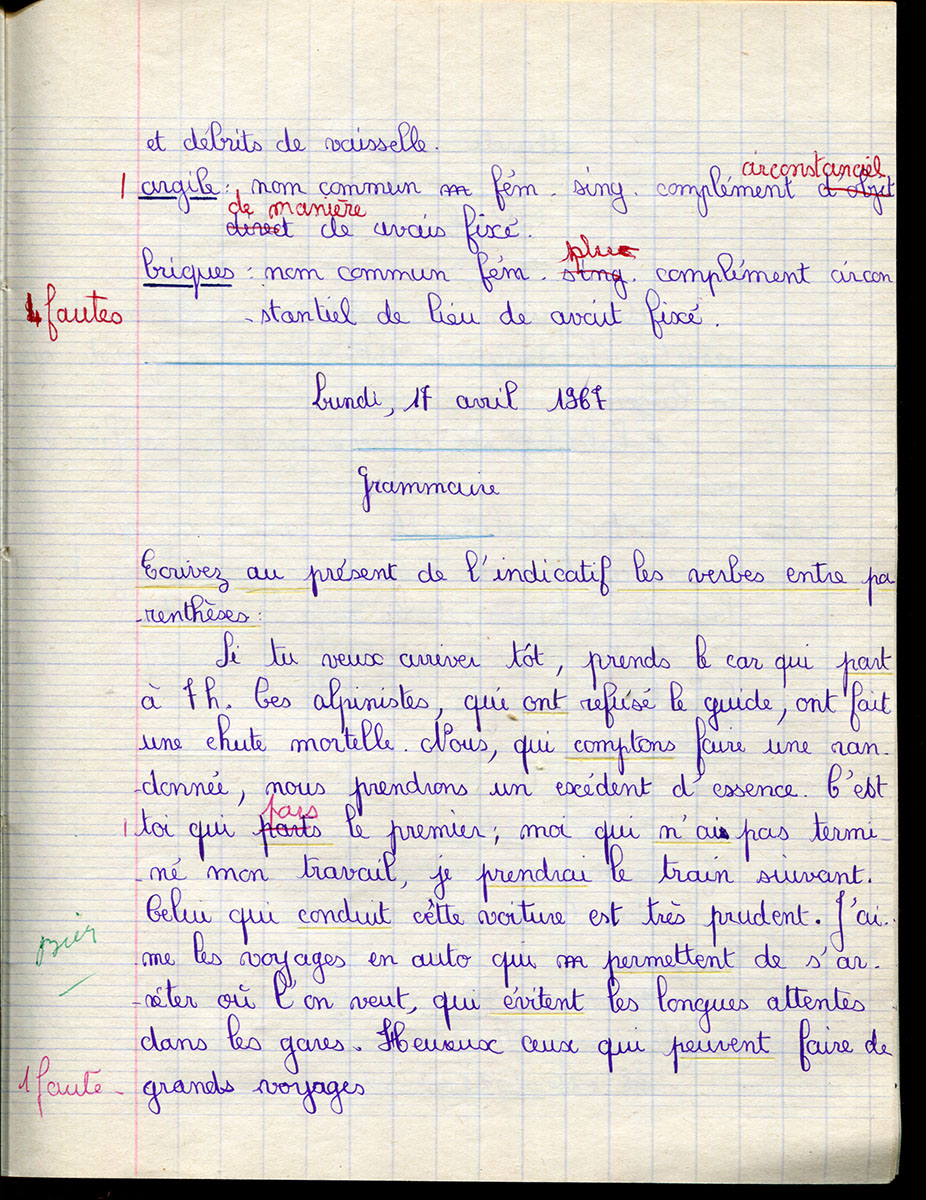 et débrits de vaisselle.
circonstanciel
1 argile : nom commun m fém. sing. complément d'objet
de manière
direct de avais fixé.
plur
briques : nom commun fém. sing. complément circon
4 fautes -stantiel de lieu de avait fixé.
Lundi, 17 avril 1967
Grammaire
Ecrivez au présent de l'indicatif les verbes entre pa
-renthèses :
Si tu veux arriver tôt, prends le car qui part
à 7h. Ces alpinistes, qui ont refusé le guide, ont fait
une chute mortelle. Nous, qui comptons faire une ran-
-donnée, nous prendrons un excédent d'essence. C'est
pars
1 toi qui parts le premier ; moi qui n'ais pas termi-
-né mon travail, je prendrai le train suivant.
Celui qui conduit cette voiture est très prudent. J'ai-
me les voyages en auto qui m permettent de s'ar-
-rêter où l'on veut, qui évitent les longues attentes
dans les gares. Heureux ceux qui peuvent faire de
1 faute - grands voyages